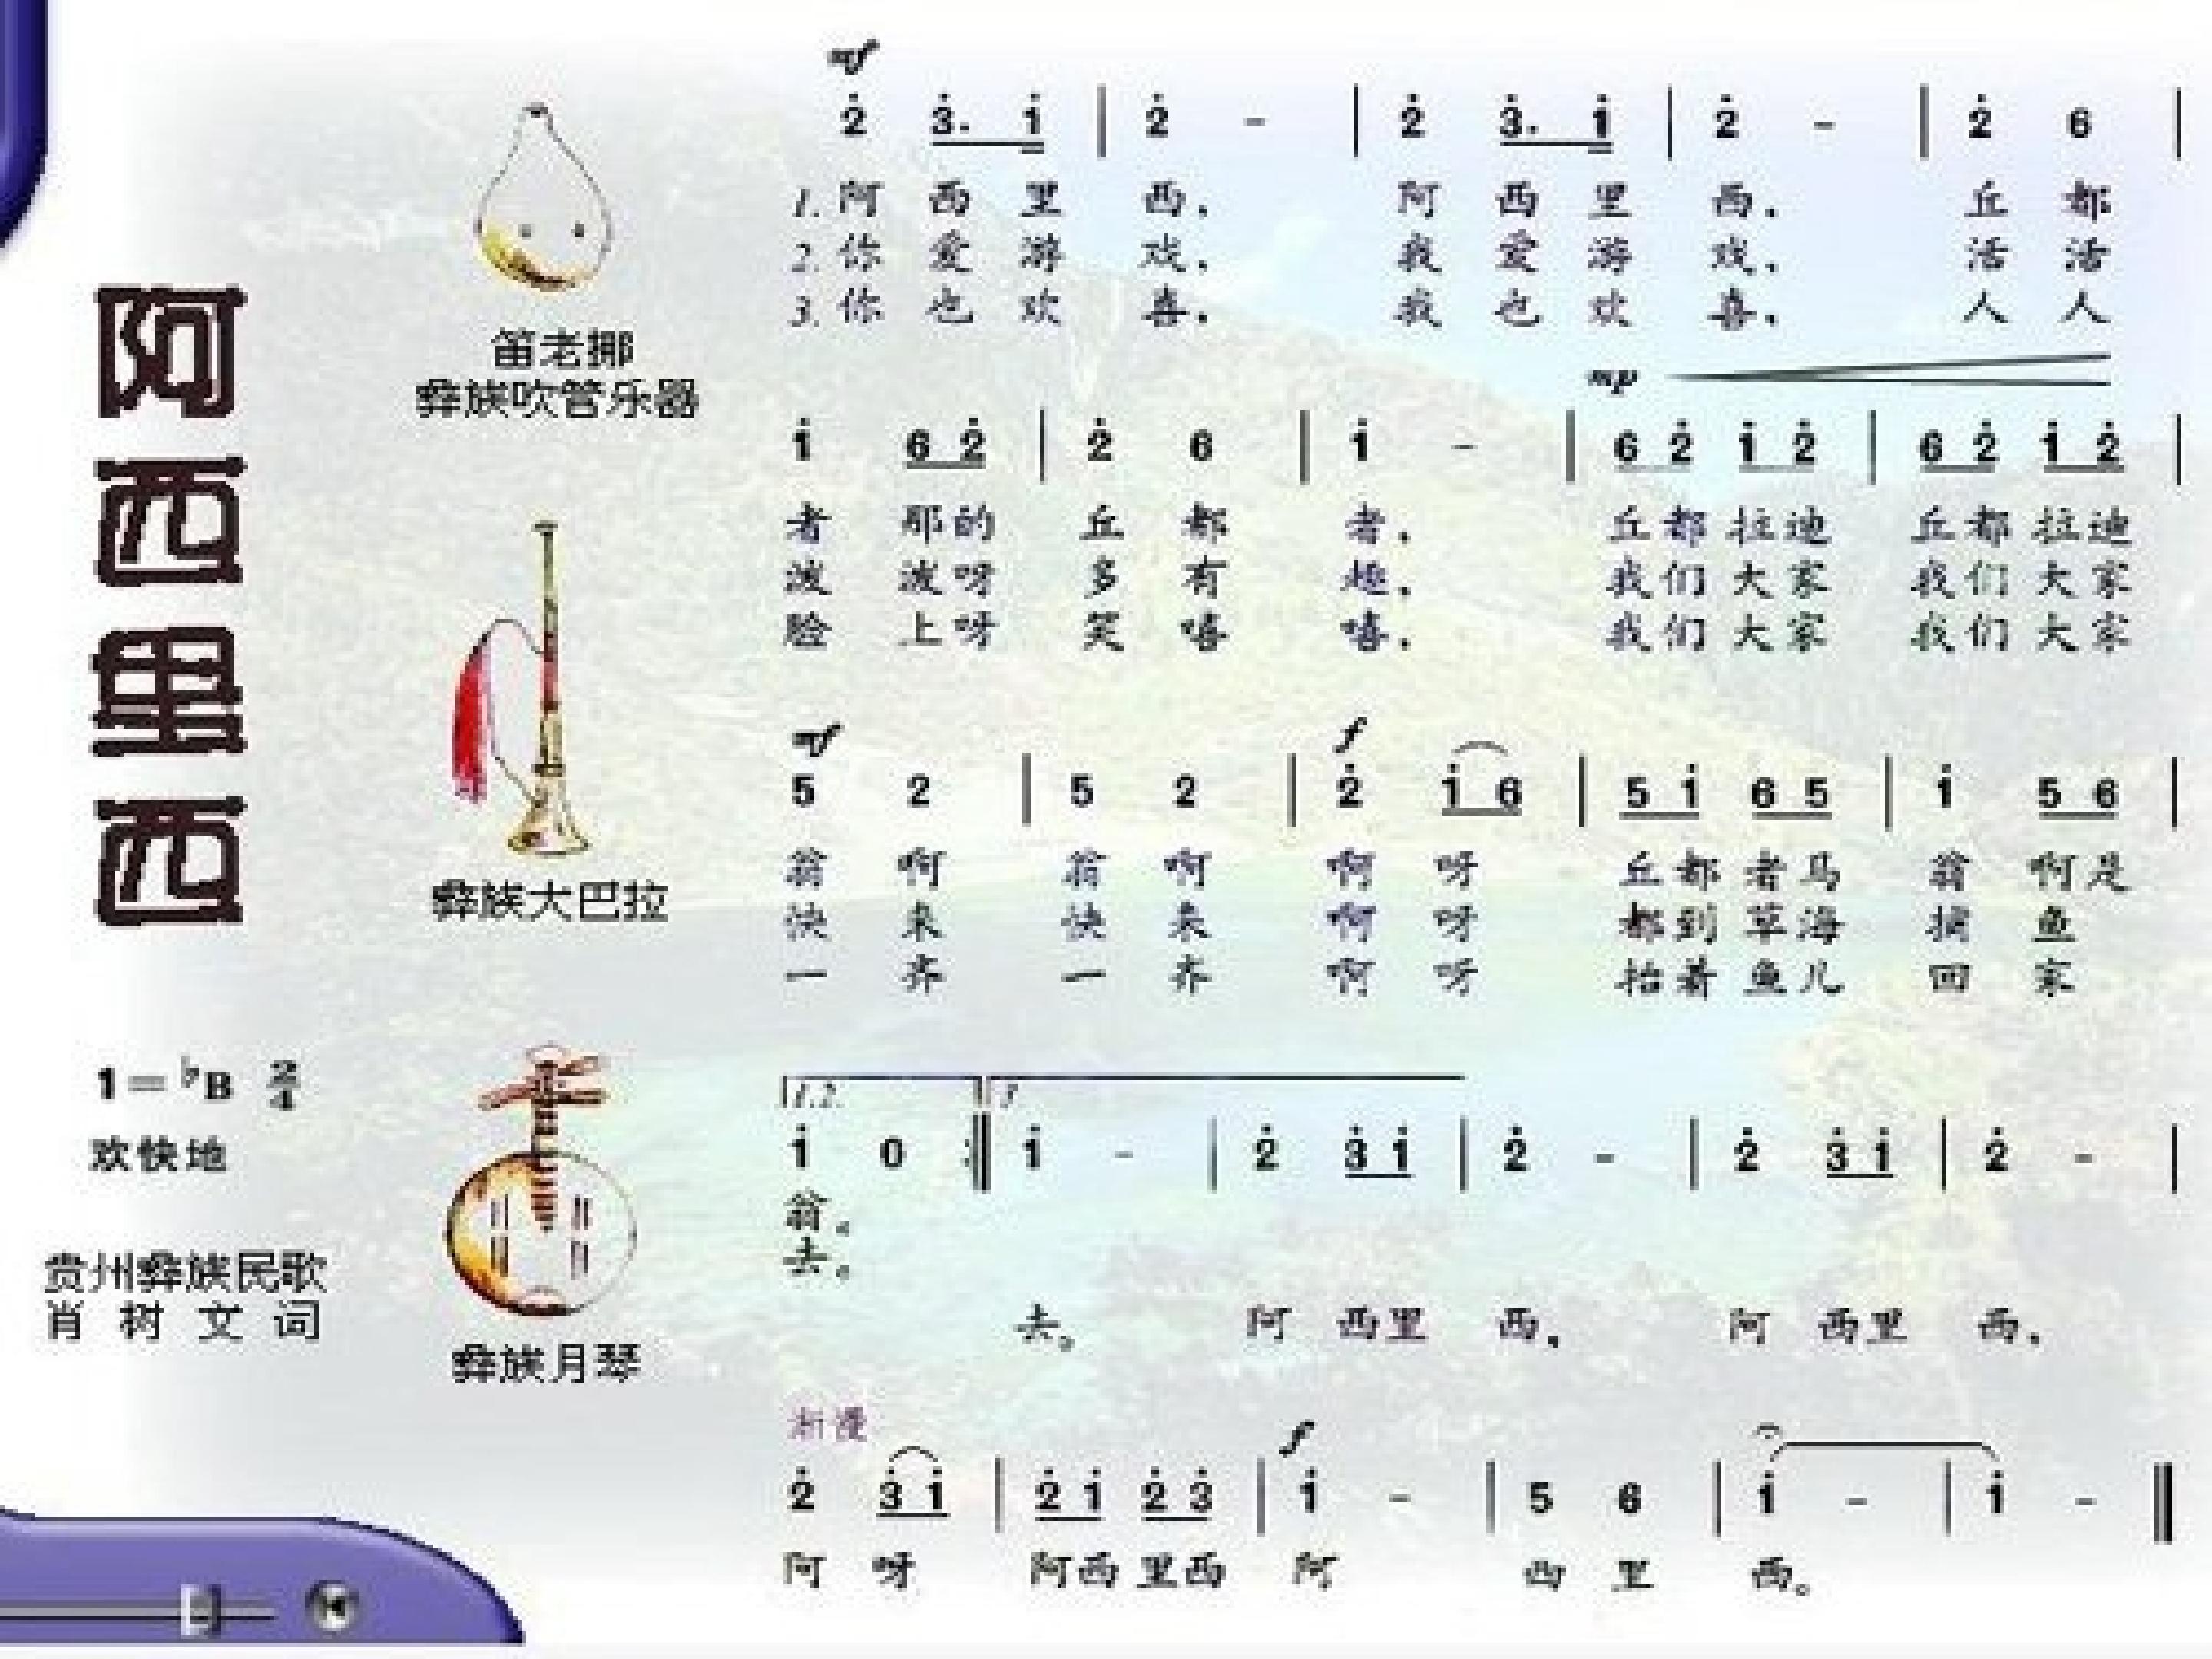 阿西里西
1=♭B 2/4
欢快地
贵州彝族民歌
肖树文词
笛老挪
彝族吹管乐器
彝族大巴拉
彝族月琴
mf
2̇ 3̇. 1̇ | 2̇ - | 2̇ 3̇. 1̇ | 2̇ - | 2̇ 6 |
1. 阿 西 里 西, 阿 西 里 西, 丘 都
2. 你 爱 游 戏, 我 爱 游 戏, 活 活
3. 你 也 欢 喜, 我 也 欢 喜, 人 人
mp
1̇ 6 2̇ | 2̇ 6 | 1̇ - | 6 2̇ 1̇ 2̇ | 6 2̇ 1̇ 2̇ |
者 那的 丘 都 者, 丘都 拉迪 丘都 拉迪
泼 泼呀 多 有 趣, 我们 大家 我们 大家
脸 上呀 笑 嘻 嘻, 我们 大家 我们 大家
mf f
5 2 | 5 2 | 2̇ 1̇ 6 | 5 1̇ 6 5 | 1̇ 5 6 |
翁 啊 翁 啊 啊 呀 丘都 者马 翁 啊是
快 来 快 来 啊 呀 都到 草海 捕 鱼
一 齐 一 齐 啊 呀 抬着 鱼儿 回 家
1.2. 3
1̇ 0 :‖ 1̇ - | 2̇ 3̇ 1̇ | 2̇ - | 2̇ 3̇ 1̇ | 2̇ - |
翁。
去。
去。 阿 西里 西, 阿 西里 西,
渐慢 f
2̇ 3̇ 1̇ | 2̇ 1̇ 2̇ 3̇ | 1̇ - | 5 6 | 1̇ - | 1̇ - ‖
阿 呀 阿西 里西 阿 西 里 西。